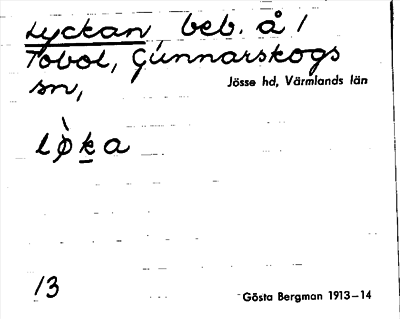 Lyckan, beb. å /
Tobol, Gunnarskogs
sn,
Jösse hd, Värmlands län
lø̀k̲a
13
Gösta Bergman 1913–14